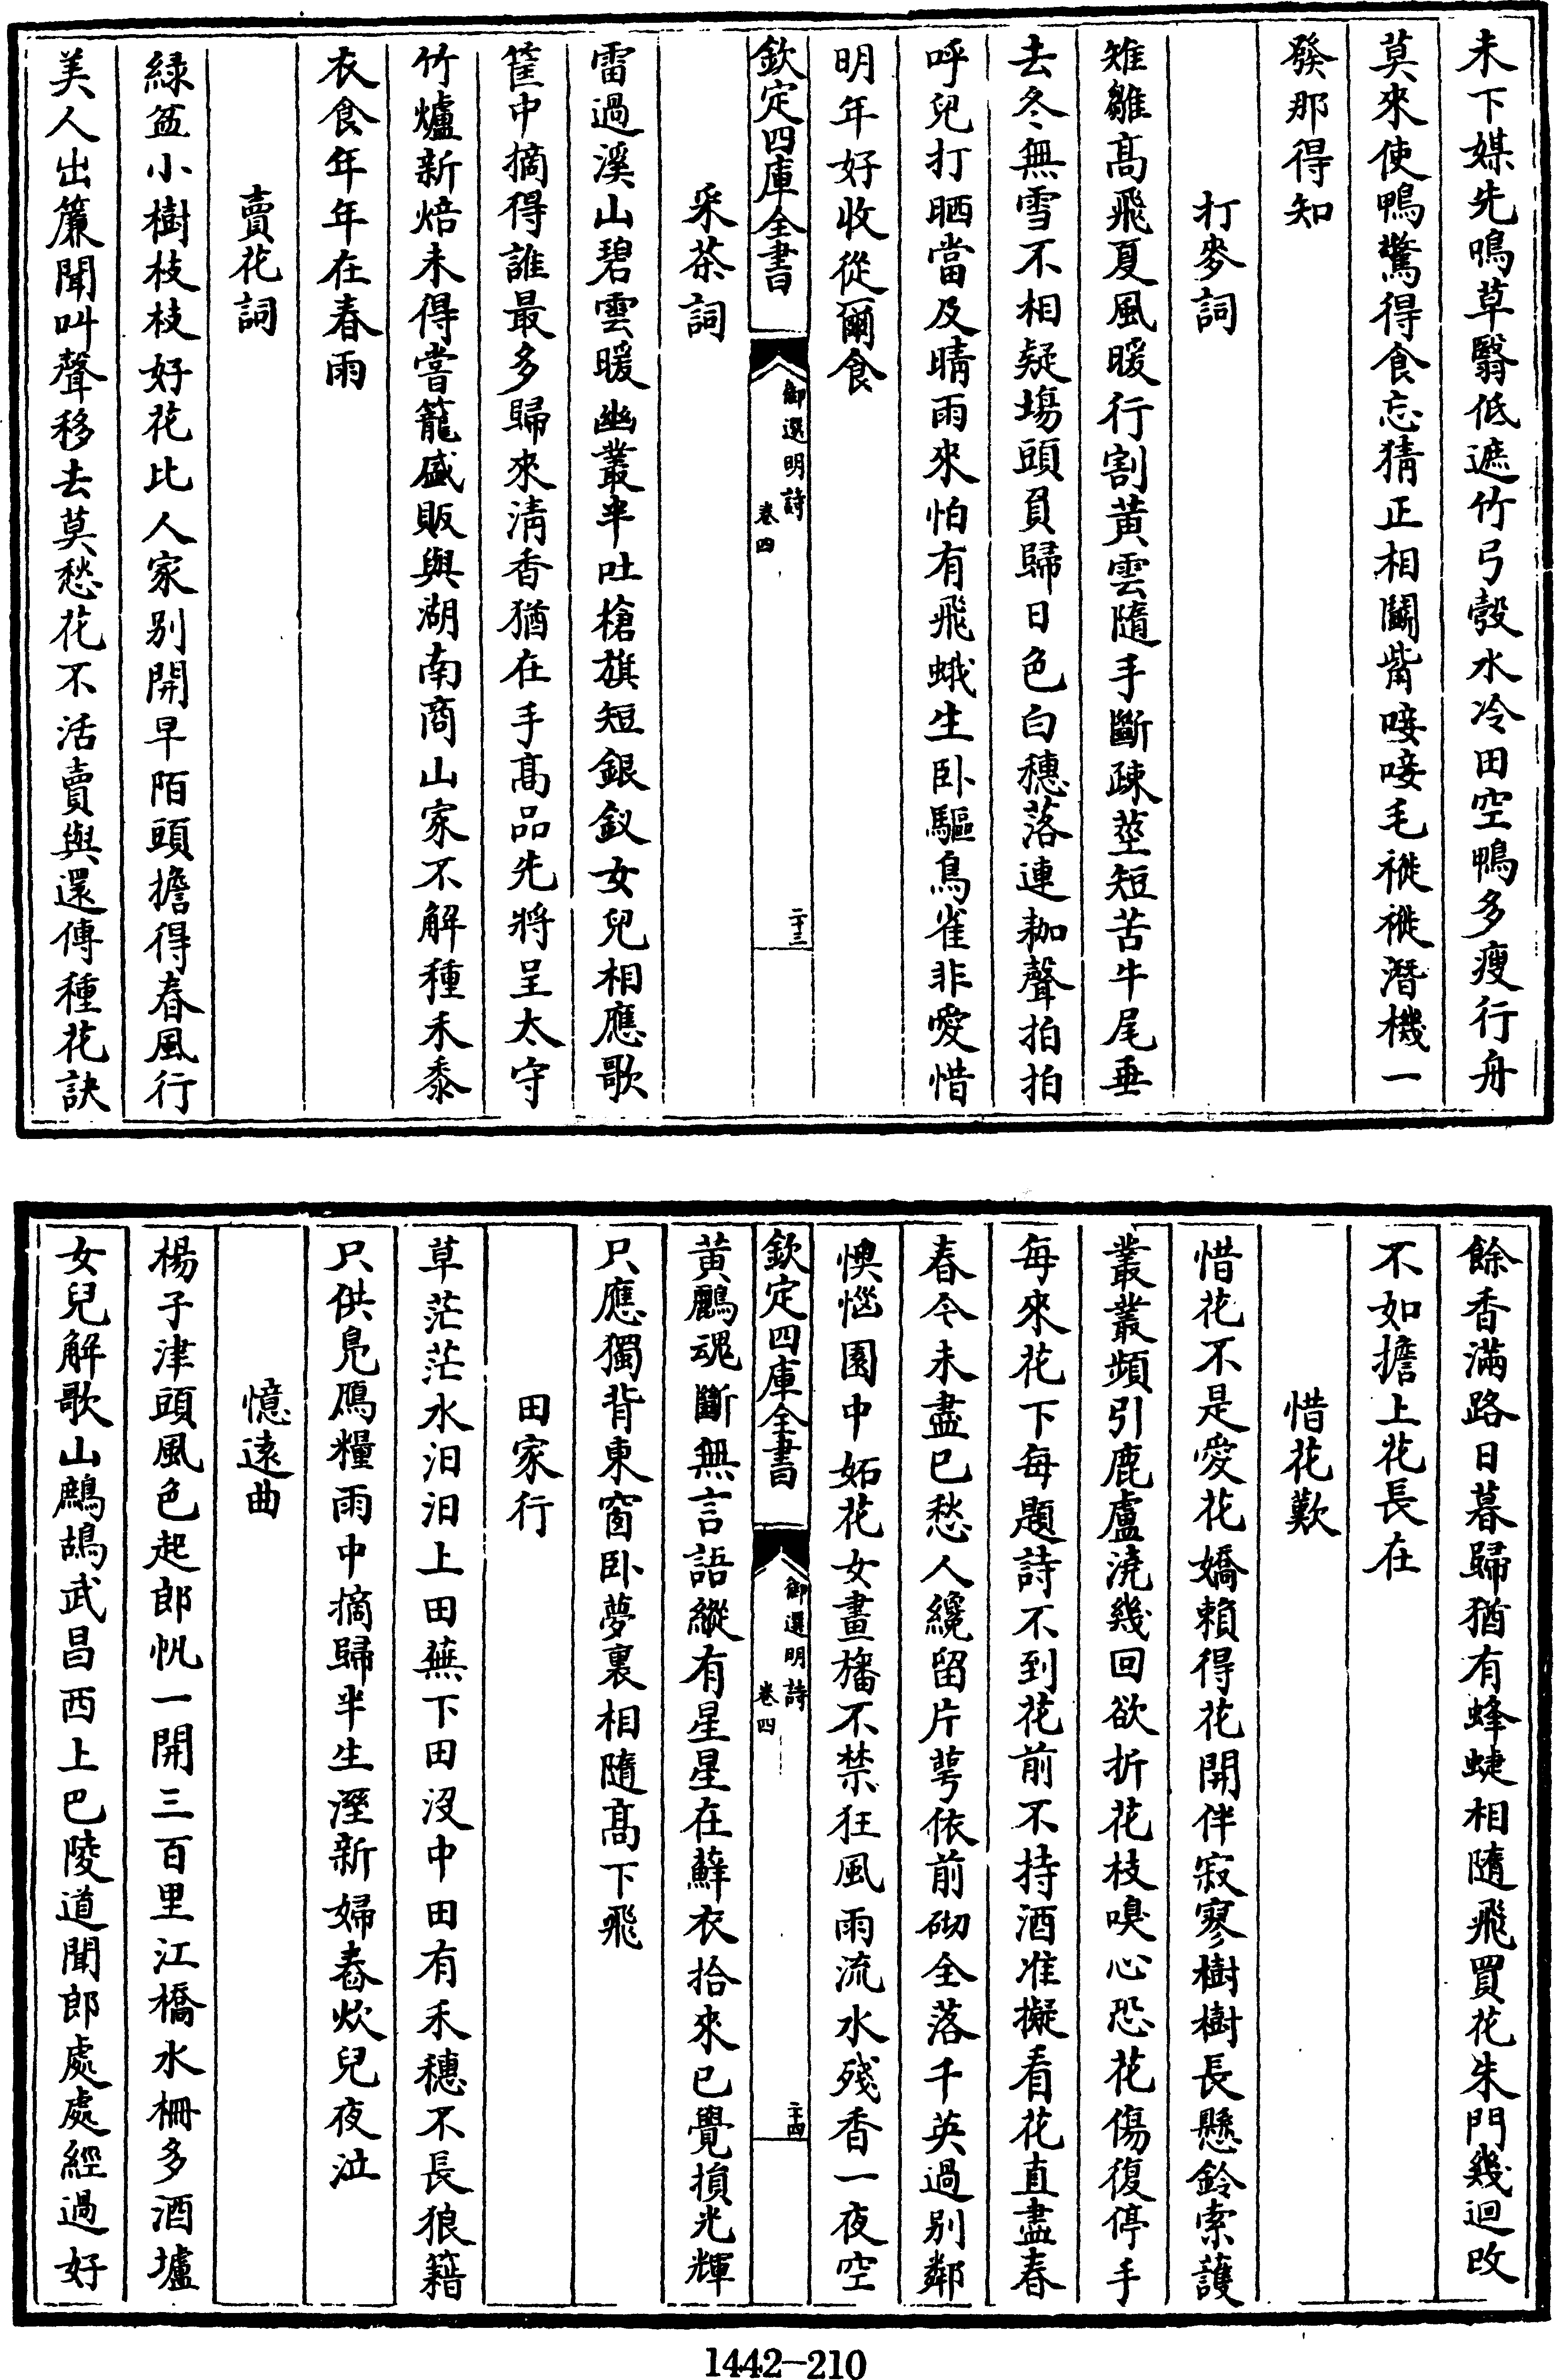 未下媒先鳴草翳低遮竹弓彀水冷田空鴨多瘦行舟
莫來使鴨驚得食忘猜正相鬭觜唼唼毛褷褷潛機一
發那得知
打麥詞
雉雛髙飛夏風暖行割黃雲隨手斷疎莖短若牛尾垂
去冬無雪不相疑塲頭負歸日色白穗落連耞聲拍拍
呼兒打晒當及晴雨來怕有飛蛾生卧驅鳥雀非愛惜
明年好收從爾食
欽定四庫全書
御選明詩
卷四
二十三
采茶詞
雷過溪山碧雲暖幽叢半吐槍旗短銀釵女兒相應歌
筐中摘得誰最多歸來清香猶在手髙品先將呈太守
竹爐新焙未得嘗籠盛販與湖南商山家不解種禾黍
衣食年年在春雨
賣花詞
緑盆小樹枝枝好花比人家别開早陌頭擔得春風行
美人出簾聞叫聲移去莫愁花不活賣與還傳種花訣
餘香滿路日暮歸猶有蜂蜨相隨飛買花朱門幾迴改
不如擔上花長在
惜花歎
惜花不是愛花嬌賴得花開伴寂寥樹樹長懸鈴索護
叢叢頻引鹿盧澆幾回欲折花枝嗅心恐花傷復停手
每來花下每題詩不到花前不持酒准擬看花直盡春
春今未盡已愁人纔留片萼依前砌全落千英過别鄰
懊惱園中妬花女畫旛不禁狂風雨流水殘香一夜空
欽定四庫全書
御選明詩
卷四
二十四
黃鸝魂斷無言語縱有星星在蘚衣拾來已覺損光輝
只應獨背東窗卧夢裏相隨髙下飛
田家行
草茫茫水汩汩上田蕪下田沒中田有禾穗不長狼籍
只供鳬鴈糧雨中摘歸半生溼新婦舂炊兒夜泣
憶遠曲
楊子津頭風色起郎帆一開三百里江橋水柵多酒壚
女兒解歌山鷓鴣武昌西上巴陵道聞郎處處經過好
1442-210